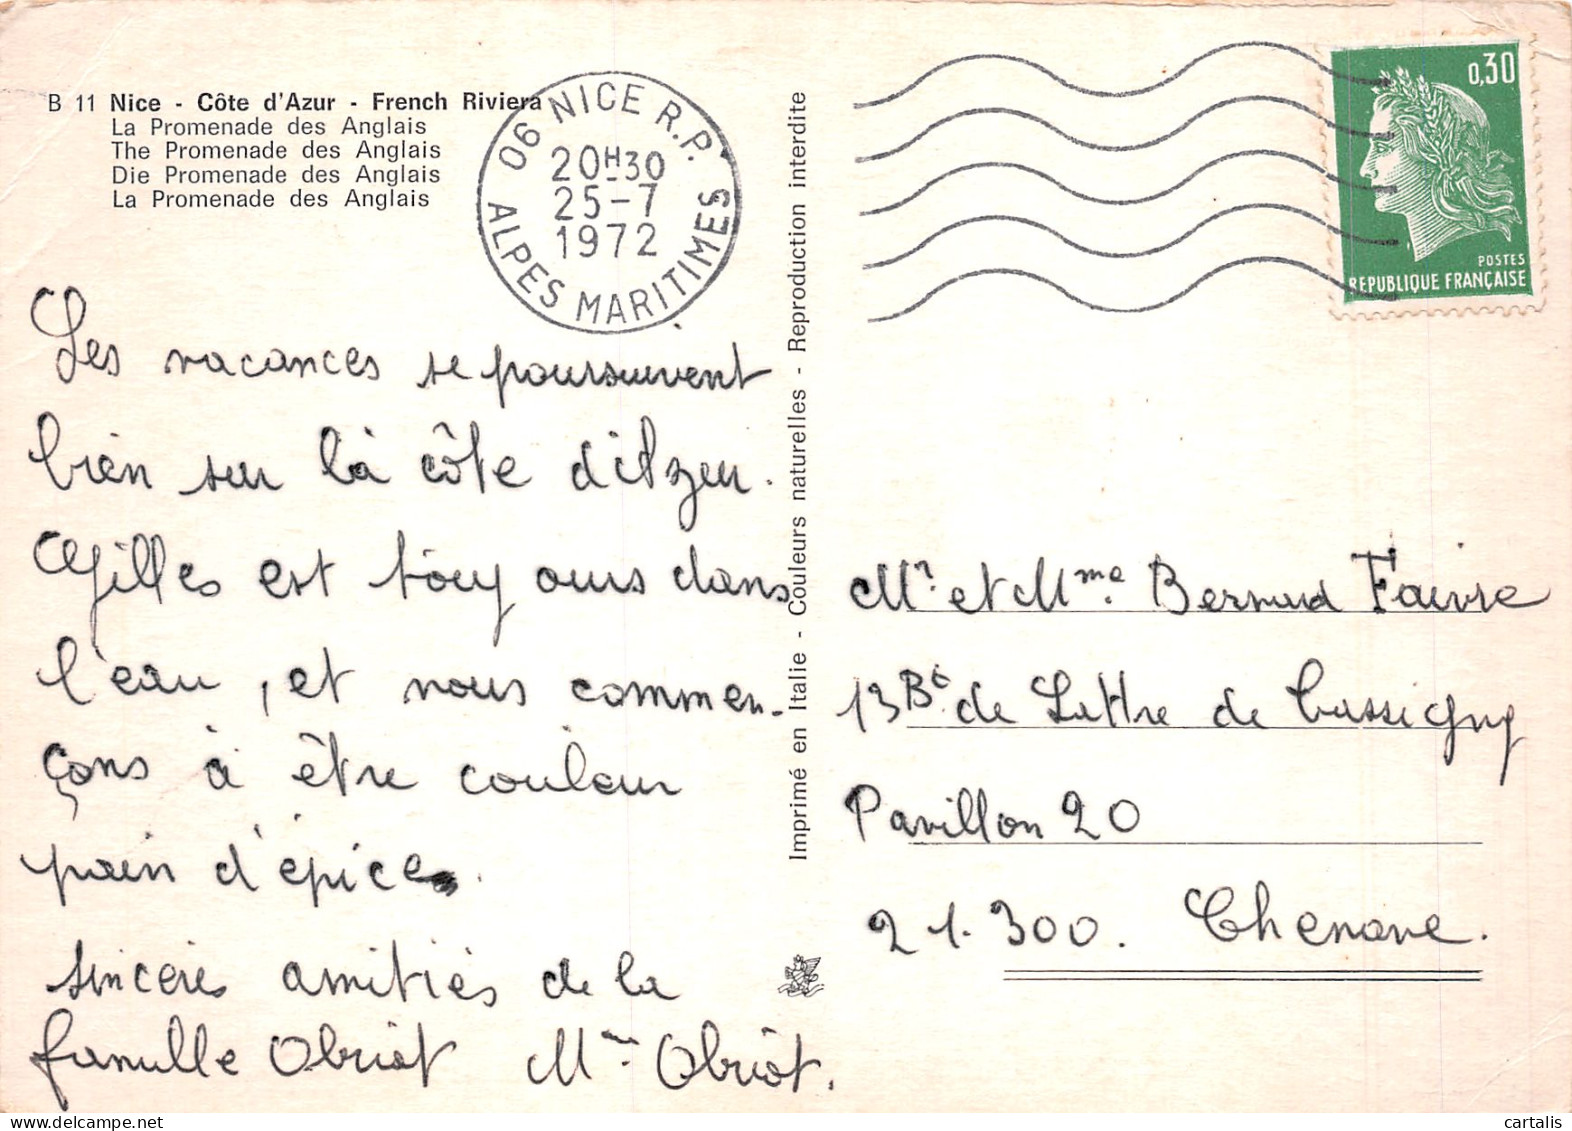 B 11 Nice - Côte d'Azur - French Riviera
La Promenade des Anglais
The Promenade des Anglais
Die Promenade des Anglais
La Promenade des Anglais
06 NICE R.P.
20H30
25-7
1972
ALPES MARITIMES
0,30
POSTES
REPUBLIQUE FRANÇAISE
Les vacances se poursuivent
bien sur la côte d'Azur.
Gilles est toujours dans
l'eau, et nous commen-
çons à être couleur
pain d'épices.
sincères amitiés de la
famille Obriot Mme Obriot.
Imprimé en Italie - Couleurs naturelles - Reproduction interdite
Mr et Mme Bernard Faivre
13 Bd de Lattre de Tassigny
Pavillon 20
21.300. Chenove.
cartalis